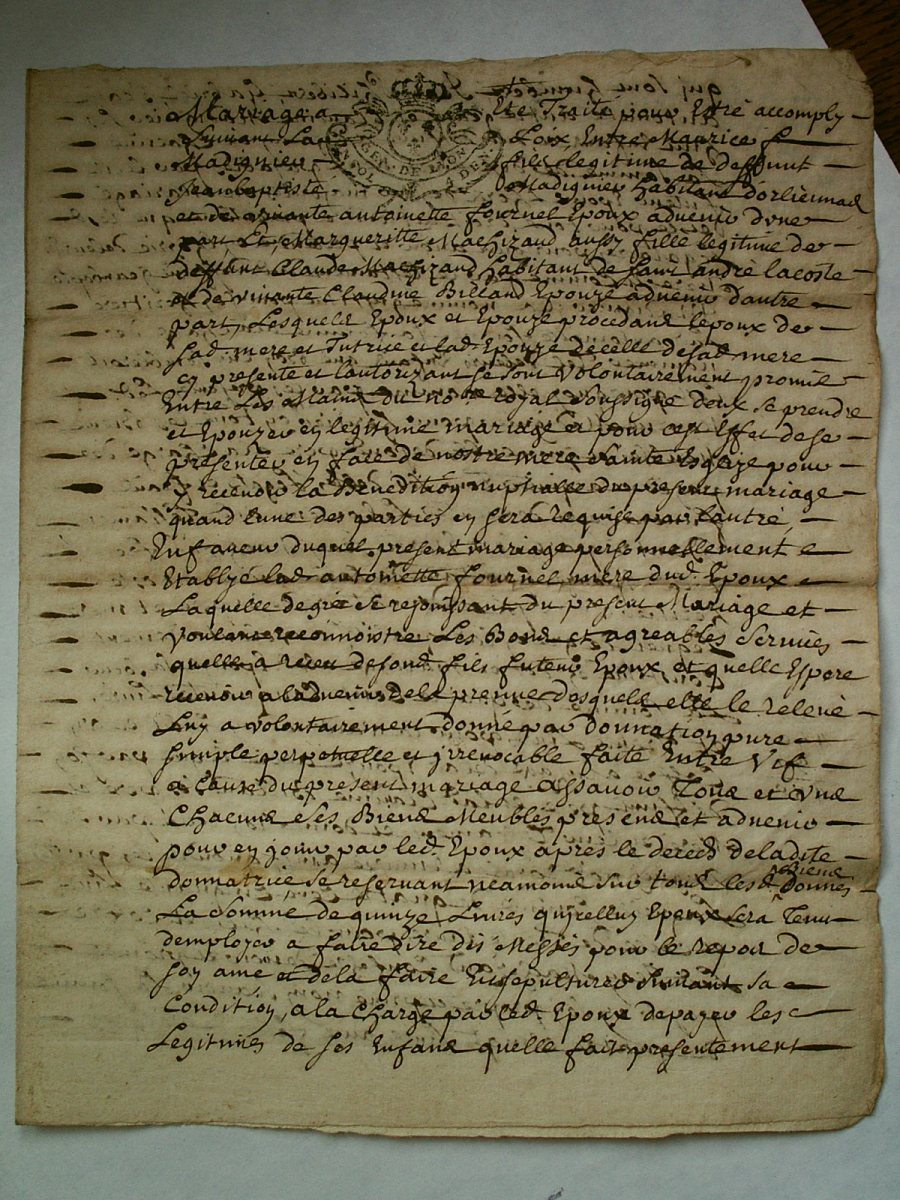 Mariage a Ete Traité pour Estre accomply
Suivant La Loix Entre Maurice
Madignier fils legitime de deffunt
Jean baptiste Madignier habitant dorliennad
et de vivante antoinette fournel Epoux advenir dune
part Et Margueritte Machizaud aussy fille legitime de
deffunt Claude Machizaud habitant de saint andré lacoste
et de vivante Claudine Billand Epouze advenir dautre
part, Lesquels Epoux et Epouze procedant lepoux de
sad. mere et Tutrice et lad. Epouze de celle de sad. mere
cy presente et l'autorizant se sont volontairement promis
Entre Les Mains du No.re royal soussigné deux se prendre
et Epouzer en legitime mariage et pour cest Effet de se
presenter en face de nostre mere sainte Esglize pour
y recevoir la Benedition nuptialle du present mariage
quand l'une des parties en sera requise par l'autre,
En faveur duquel present mariage personnellement
Etablye lad. antoinette fournel mere dud. Epoux
Laquelle de gré se rejouissant du present Mariage et
voulant reconnoistre Les Bons et agreables Services
quelle a receu de sond. fils futeur Epoux et quelle Espere
recevoir a ladvenir de la preuve desquels elle le releve
Luy a volontairement donné par donnation pure
simple perpetuelle et jrrevocable faite Entre Vif
a Cause du present mariage assavoir Tous et Uns
Chacuns ses Biens Meubles presens et advenir
pour en jouir par led. Epoux après le deceds de ladite
donnatrice, se reservant neamoins sur tous lesd. biens donnés
La somme de quinze Livres qu'icelluy Epoux sera Tenu
demployer a faire dire des Messes pour le repos de
son ame et de la faire Ensepulturer suivant sa
Condition, a la Charge par led. Epoux de payer les
Legitimes de ses Enfans quelle fait presentement